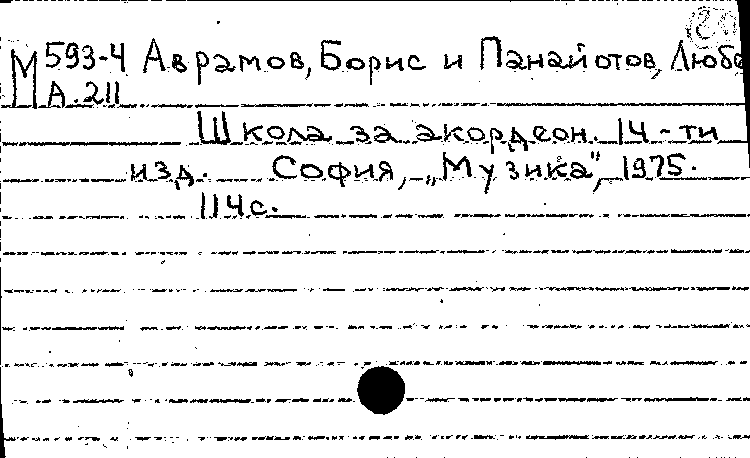 М 593-4 Аврамов, Борис и Панайотов, Любо
А.211
Школа за акордеон. 14-ти
изд. София, „Музика", 1975.
114с.